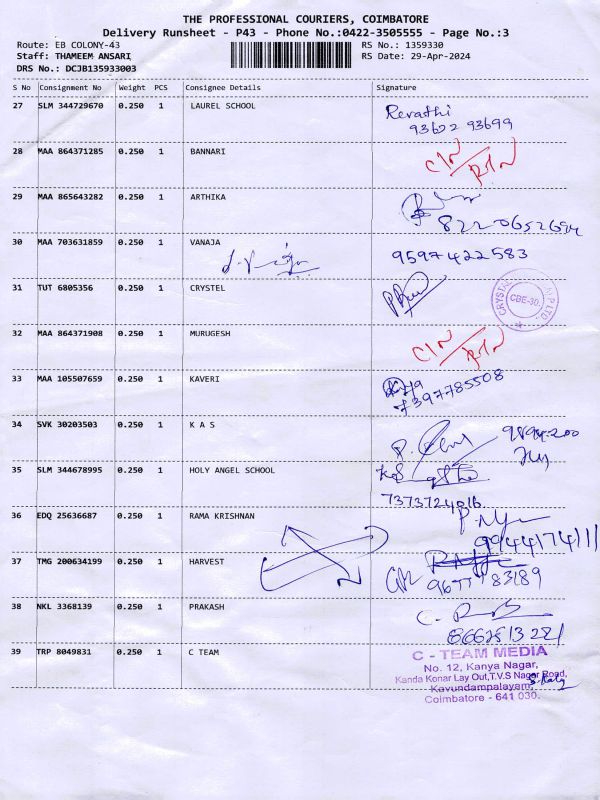 THE PROFESSIONAL COURIERS, COIMBATORE
Delivery Runsheet - P43 - Phone No.:0422-3505555 - Page No.:3
Route: EB COLONY-43 RS No.: 1359330
Staff: THAMEEM ANSARI RS Date: 29-Apr-2024
DRS No.: DCJB135933003
S No Consignment No Weight PCS Consignee Details Signature
27 SLM 344729670 0.250 1 LAUREL SCHOOL Revathi
93622 93699
28 MAA 864371285 0.250 1 BANNARI C/N/RTN
29 MAA 865643282 0.250 1 ARTHIKA
30 MAA 703631859 0.250 1 VANAJA 9597422583
31 TUT 6805356 0.250 1 CRYSTEL
CBE-30.
32 MAA 864371908 0.250 1 MURUGESH C/N/RTN
33 MAA 105507659 0.250 1 KAVERI
7397785508
34 SVK 30203503 0.250 1 K A S
35 SLM 344678995 0.250 1 HOLY ANGEL SCHOOL
7373724016
36 EDQ 25636687 0.250 1 RAMA KRISHNAN
9944174111
37 TMG 200634199 0.250 1 HARVEST
38 NKL 3368139 0.250 1 PRAKASH
39 TRP 8049831 0.250 1 C TEAM C - TEAM MEDIA
No. 12, Kanya Nagar,
Kanda Konar Lay Out,T.V.S Nagar Road,
Kavundampalayam,
Coimbatore - 641 030.